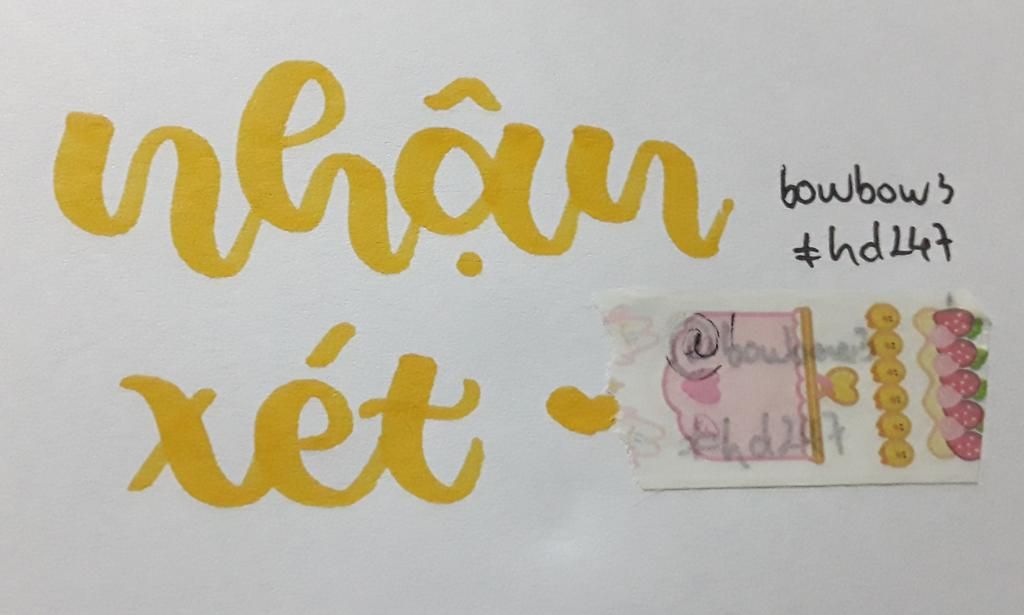 nhận
xét
bowbow3
#hd247
@bowbow3
#hd247